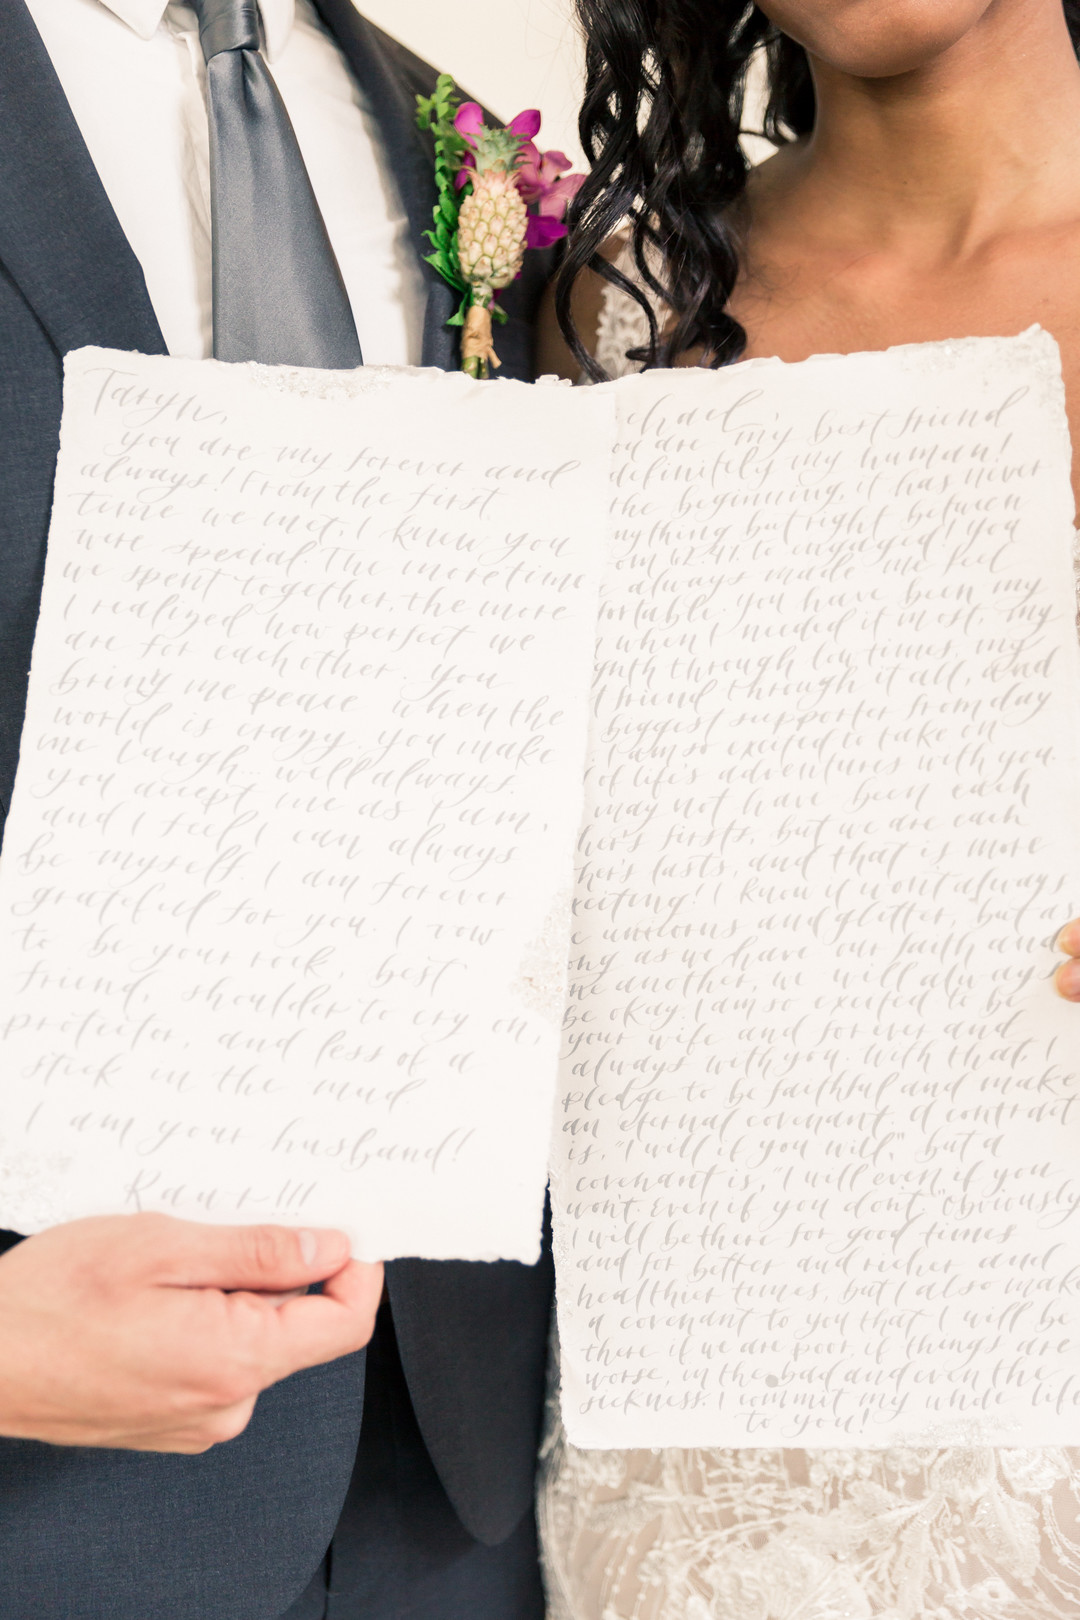 Taryn,
you are my forever and
always! From the first
time we met, I knew you
were special. The more time
we spent together, the more
I realized how perfect we
are for each other. You
bring me peace when the
world is crazy. You make
me laugh... well always.
You accept me as I am,
and I feel I can always
be myself. I am forever
grateful for you I vow
to be your rock, best
friend, shoulder to cry on,
protector, and less of a
stick in the mud
I am your husband!
chael,
ou are my best friend
definitely my human!
the beginning, it has never
nything but right between
om to engaged! You
always made me feel
fortable. You have been my
when I needed it most, my
gnth through low times, my
friend through it all, and
biggest supporter from day
. I am so excited to take on
of life's adventures with you.
may not have been each
her's firsts, but we are each
her's lasts, and that is more
xciting! I know it won't always
e unicorns and glitter, but as
ong as we have our faith and
ne another, we will always
be okay. I am so excited to be
your wife and forever and
always with you. With that, I
pledge to be faithful and make
an eternal covenant. A contract
is, "I will if you will," but a
covenant is, "I will even if you
won't. Even if you don't." Obviously
I will be there for good times
and for better and richer and
healthier times, but I also make
a covenant to you that I will be
there if we are poor, if things are
worse, in the bad and even the
sickness. I commit my whole life
to you!